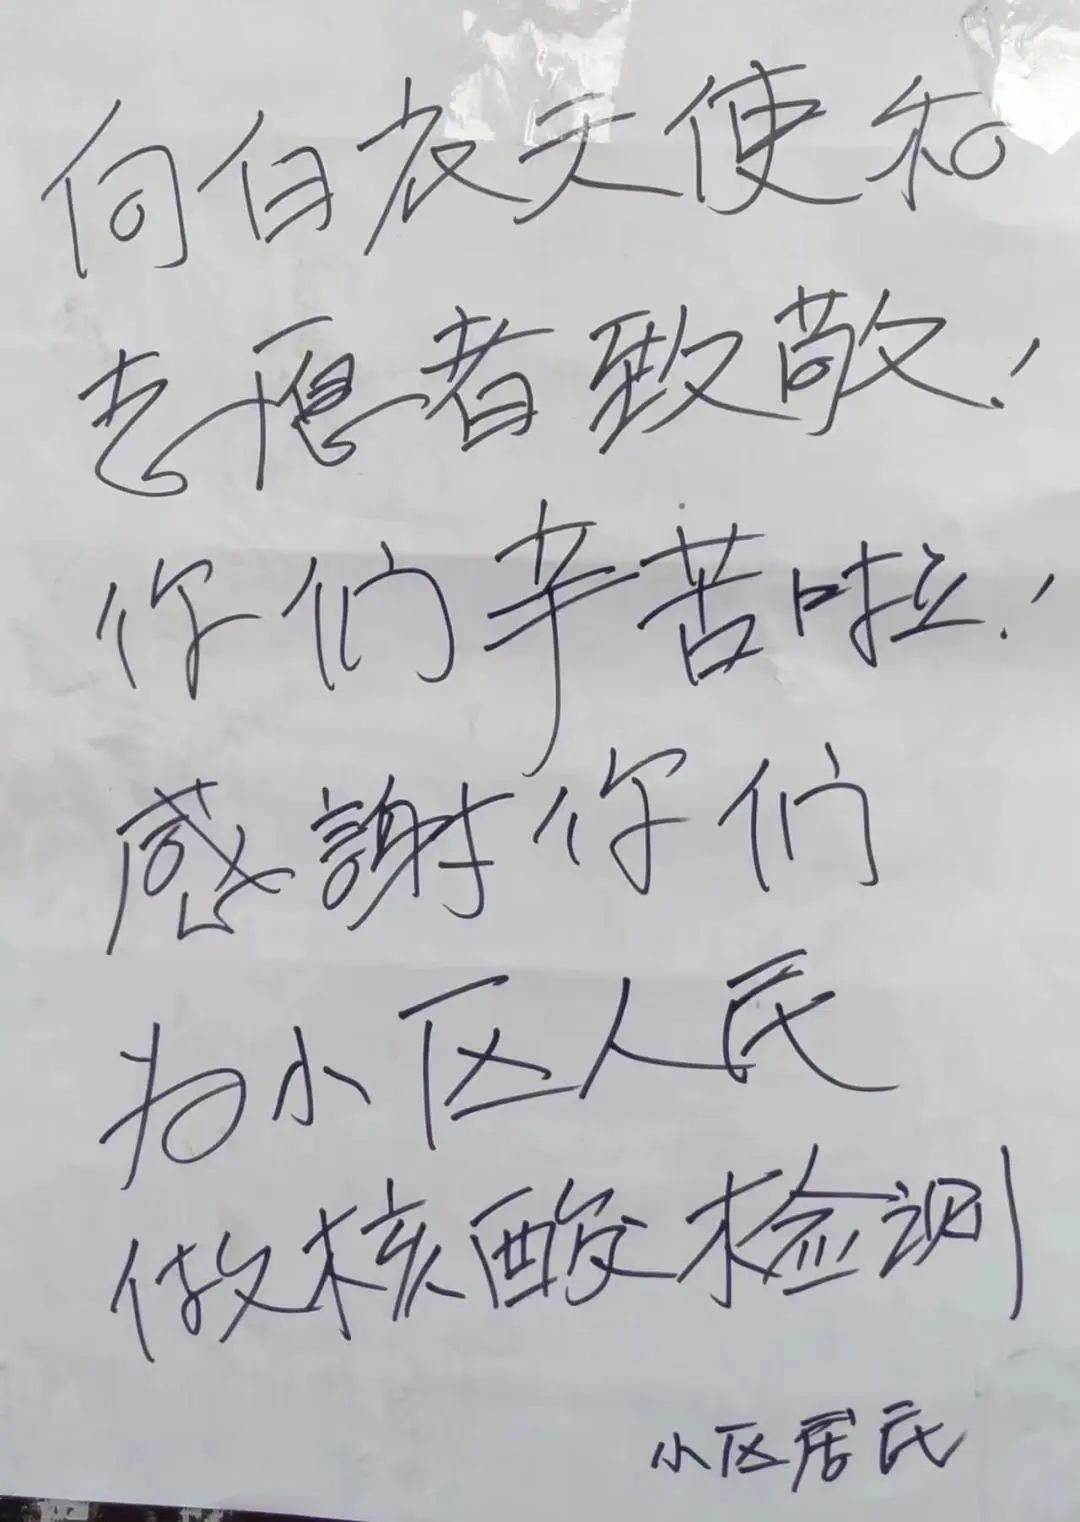 向白衣天使和
志愿者致敬!
你们辛苦啦!
感謝你们
为小区人民
做核酸检测
小区居民